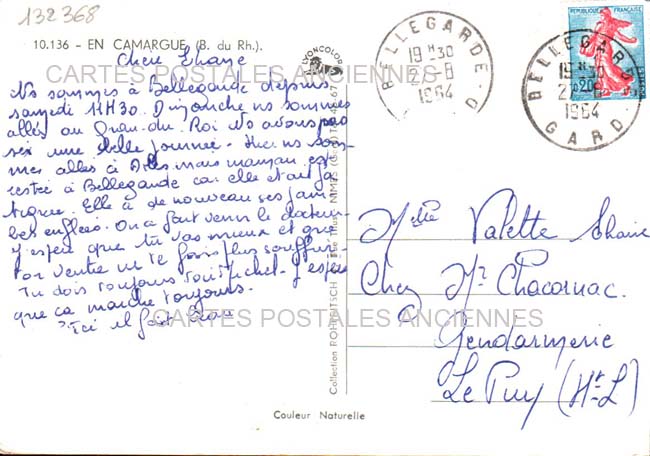 132368
10.136 - EN CAMARGUE (B. du Rh.).
LYONCOLOR
Chere Eliane
CARTES POSTALES ANCIENNES
Ns sommes à Bellegarde depuis
samedi 11H30. Dimanche ns sommes
allés au Grau-du Roi Ns avons pas
sé une belle journée. Hier ns som-
mes allés à Arles mais maman est
restée à Bellegarde car elle était fa
tiguée. Elle à de nouveau ses jam
bes enflées. On a fait venir le docteur
J'espère que tu vas mieux et que
ton ventre ne te fais plus souffrir
Tu dois toujours J'espère
que ça marche toujours.
Ici il fait beau
CARTES POSTALES ANCIENNES
Collection POHL NIMES
Couleur Naturelle
BELLEGARDE-D
19H30
2 -8
1964
REPUBLIQUE FRANÇAISE
0,20
BELLEGARDE
19H30
2 -8
1964
GARD
Melle Valette Eliane
Chez Mr Chacornac
Gendarmerie
Le Puy (Hte-L)